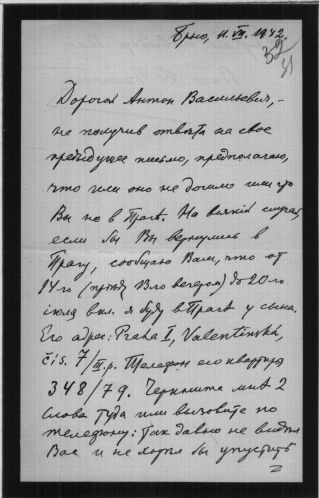 Брно, 11.VII.1942.
32
Дорогой Антон Васильевич, –
не получив ответа на свое
предыдущее письмо, предполагаю,
что или оно не дошло или что
Вы не в Праге. На всякий случай,
если бы Вы вернулись в
Прагу, сообщаю Вам, что от
14-го до 20-го
июля вкл. я буду в Праге у сына.
Его адрес: Praha I, Valentinská,
čís. 7/III.p. Телефон его квартиры
348/79. Черкните мне 2
слова туда или вызовите по
телефону: так давно не видел
Вас и не хотел бы упустить